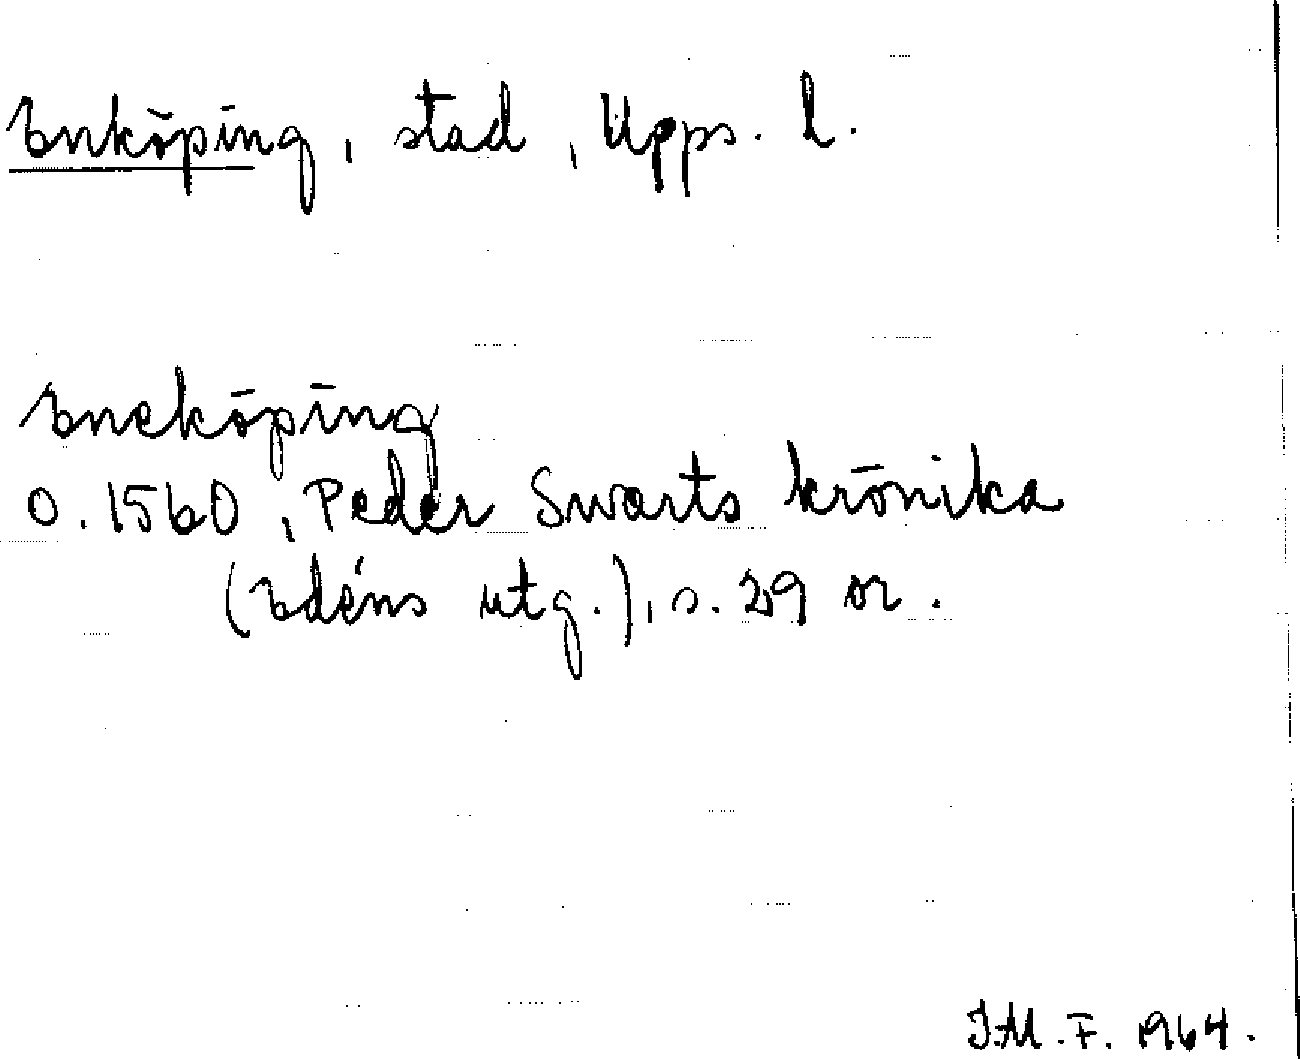 Enköping, stad, Upps. l.
Eneköping
o. 1560, Peder Swarts krönika
(Edéns utg.), s. 29 or.
I.M.F. 1964.